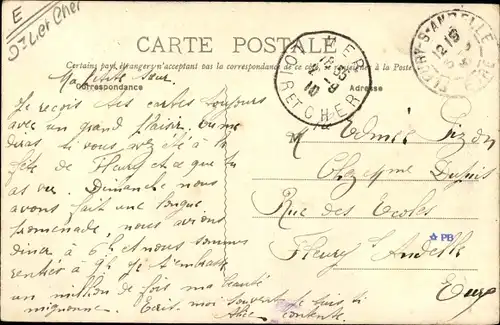 E
Dt Loir et Cher
CARTE POSTALE
Certains pays étrangers n'acceptant pas la correspondance de ce côté, se renseigner à la Poste
Correspondance
Adresse
MER
18 35
2 - 9
10
LOIR ET CHER
FLEURY-S-ANDELLE
12 15
EURE
Ma petite sœur.
Je reçois tes cartes toujours
avec un grand plaisir. Tu me
diras si vous avez été à la
fête de Fleury et ce que tu
as vu. Dimanche nous
avons fait une longue
promenade, nous avons
diner à 6h et nous sommes
rentrés à 9h. Je t'embrasse
un million de fois ma beauté
mignonne. Ecris moi souvent je suis si
contente.
Alice
M
Chez Mme Dupuis
Rue des Ecoles
Fleury s/ Andelle
Eure
PB